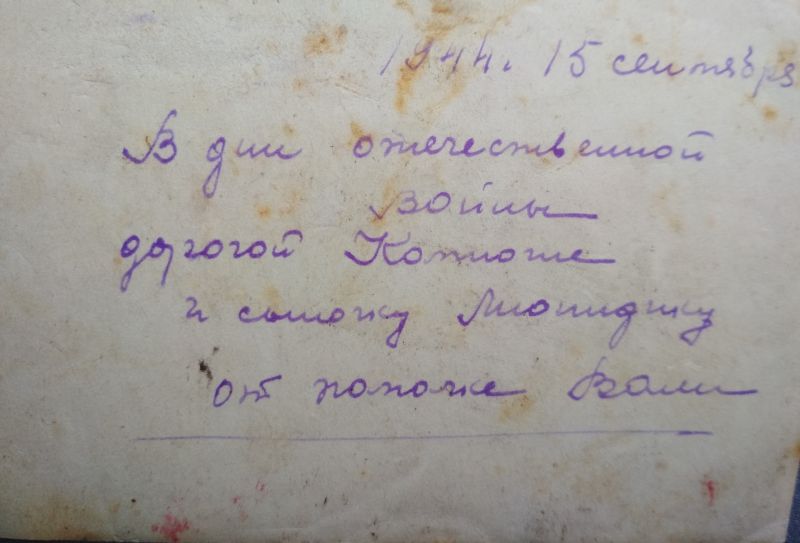 1944. 15 сентября
В дни отечественной
войны
дорогой Катюше
и сыночку
от папочке Вали